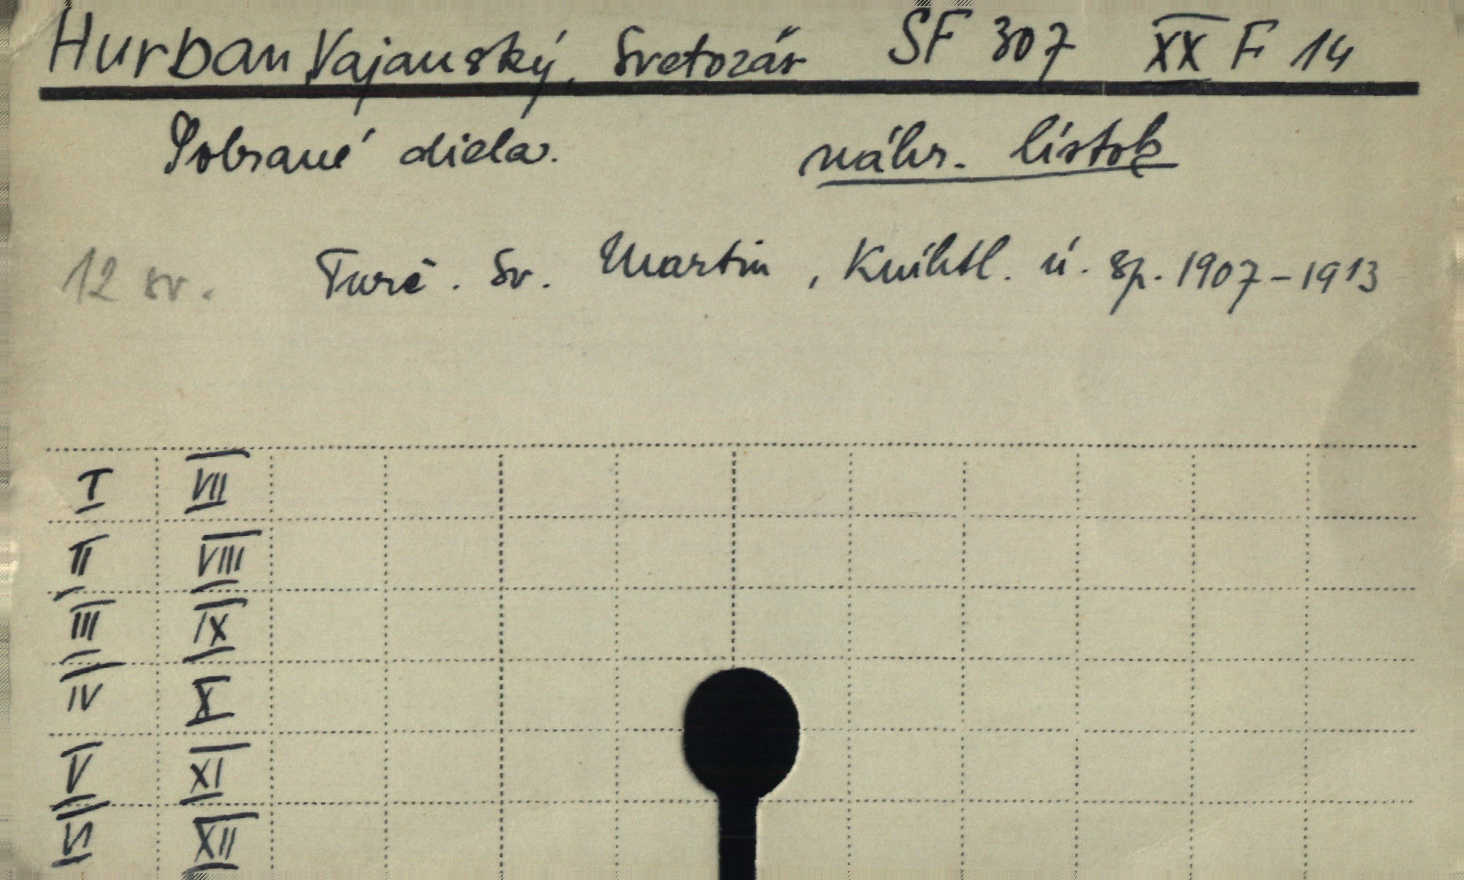 Hurban Vajanský, Svetozár SF 307 XX F 14
Sobrané diela. náhr. lístok
12 sv. Turč. Sv. Martin, Kníhtl. ú. sp. 1907-1913
I VII
II VIII
III IX
IV X
V XI
VI XII